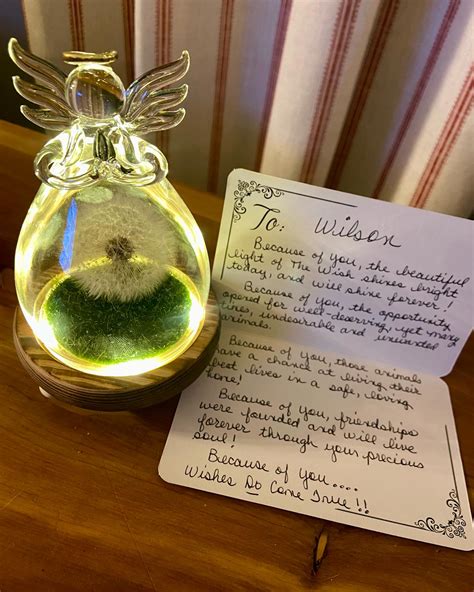 To: Wilson
Because of you, the beautiful
light of The Wish shines bright
today, and will shine forever!
Because of you, the opportunity
opened for well-deserving, yet many
times, undesirable and unwanted
animals.
Because of you, those animals
have a chance at living their
best lives in a safe, loving
home!
Because of you, friendships
were founded and will live
forever through your precious
soul!
Because of you....
Wishes Do Come True!!